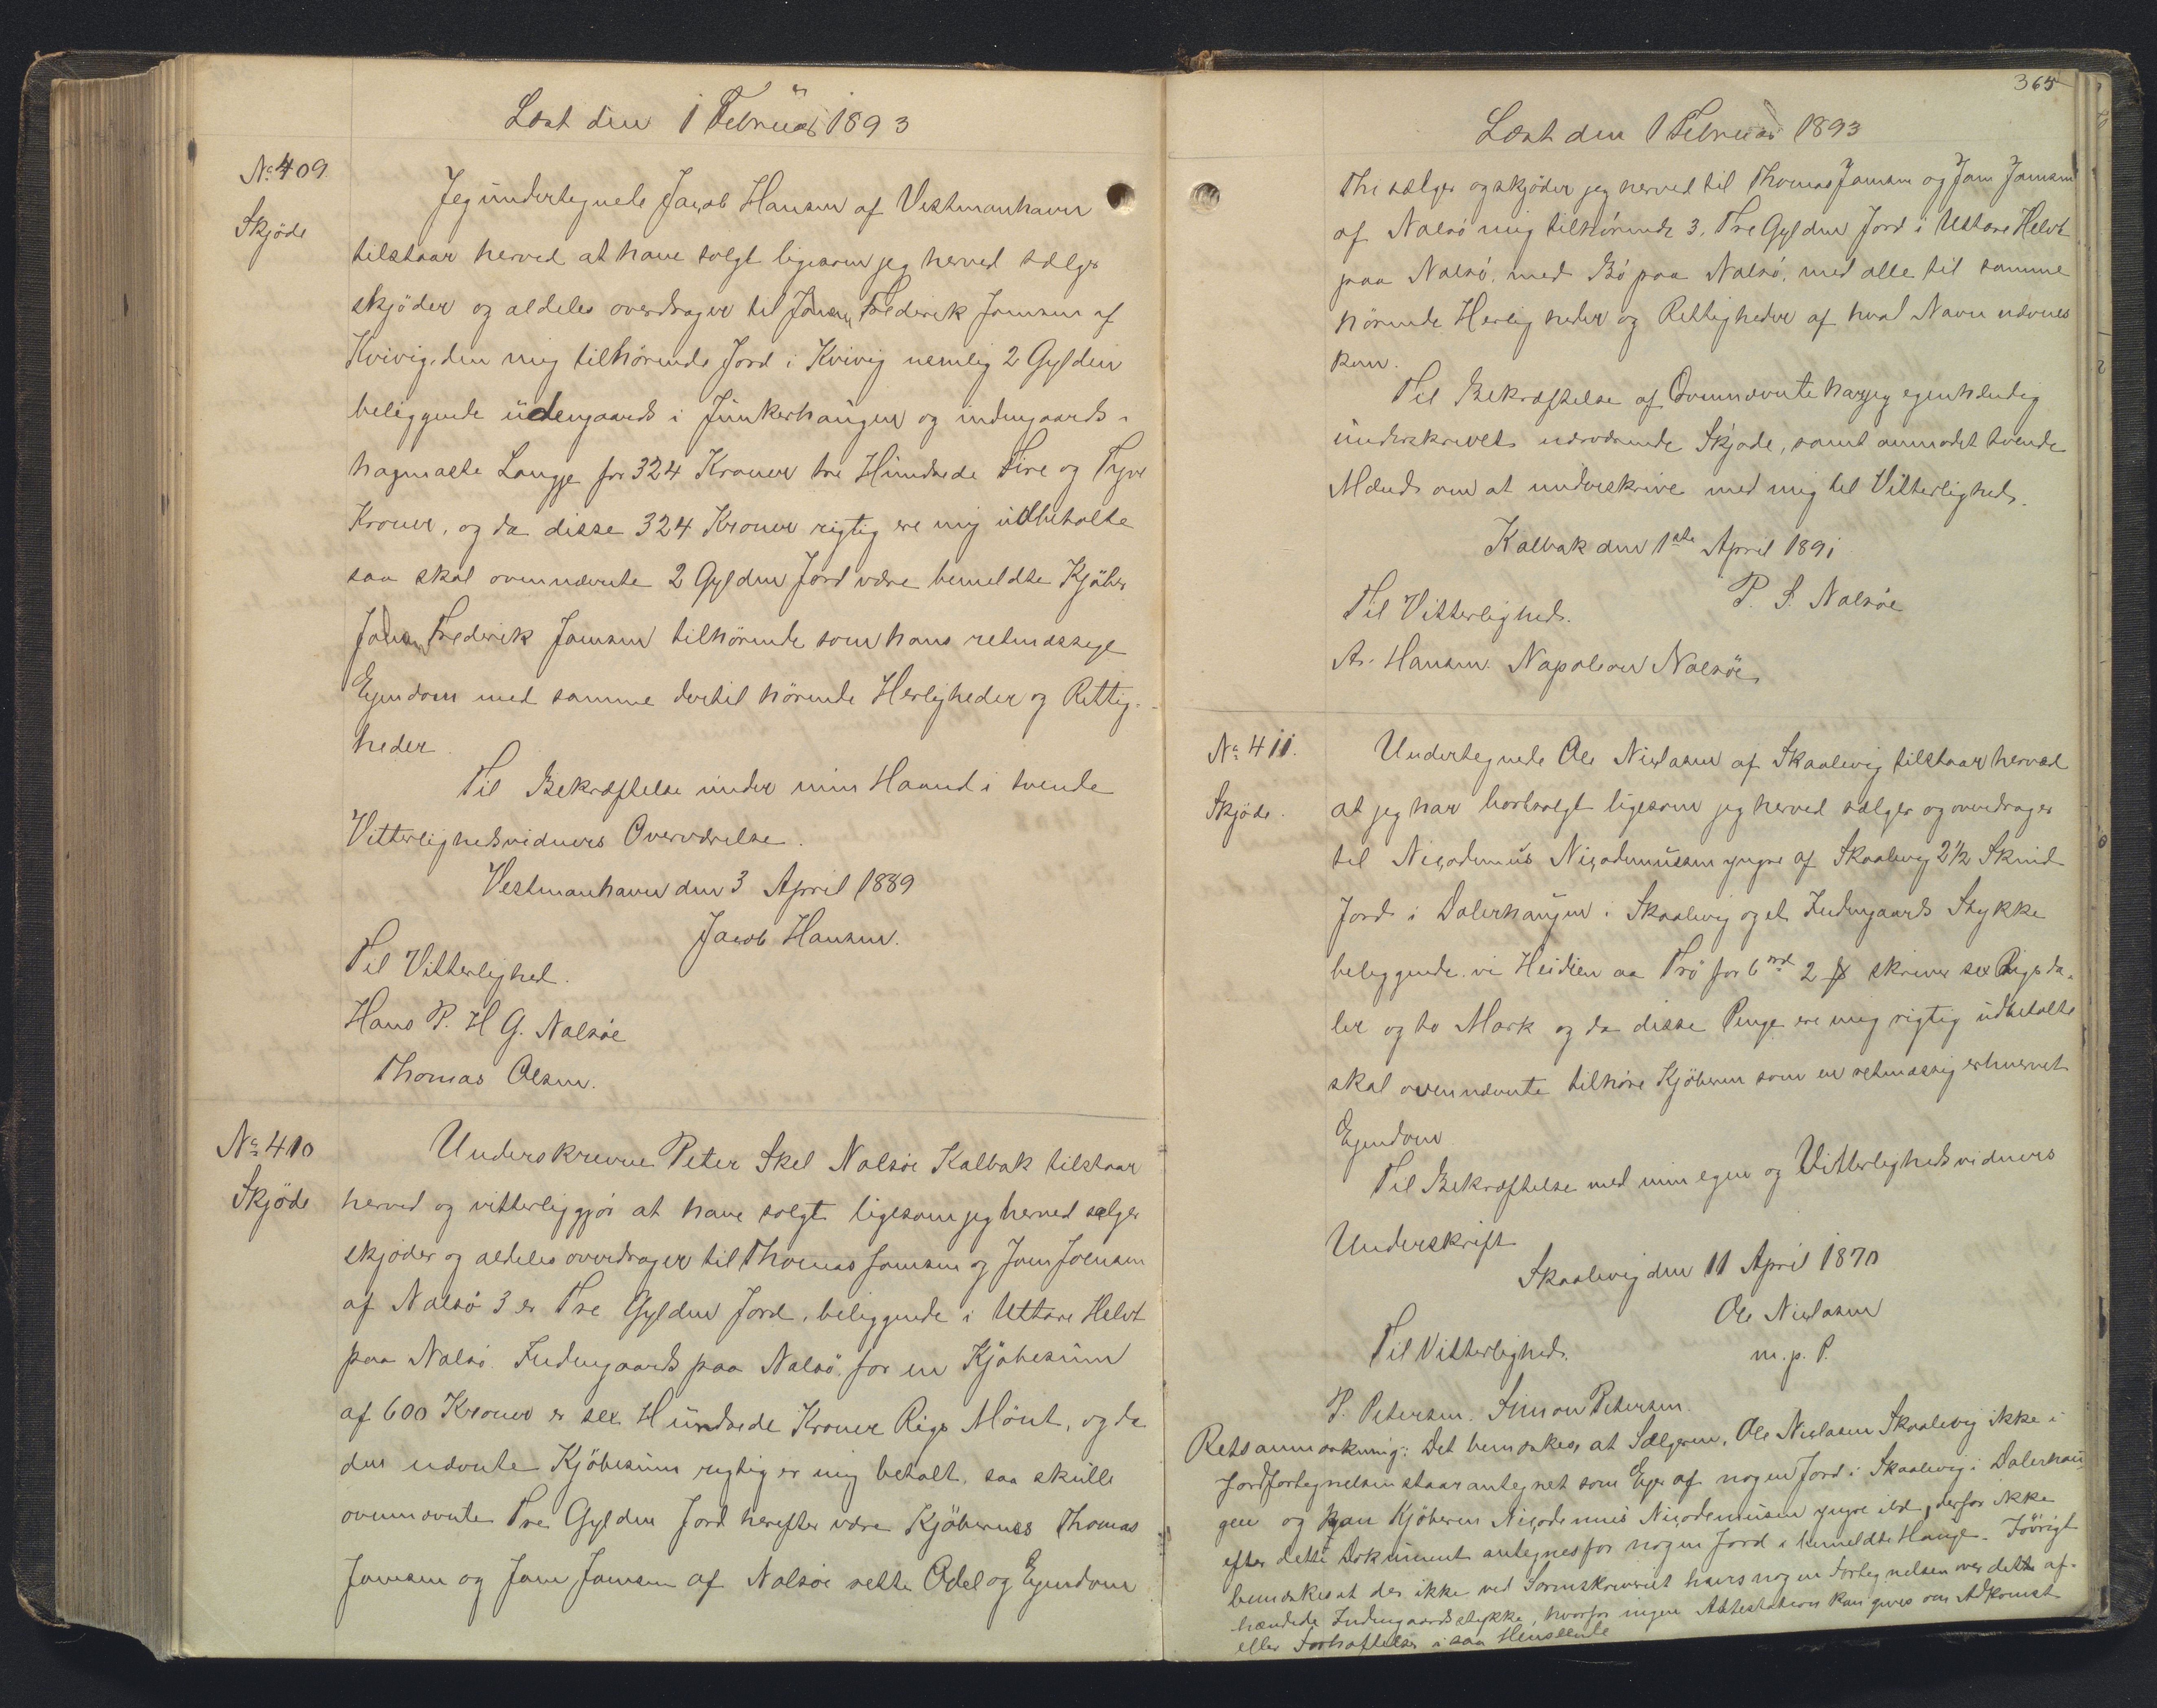 Læst den 1 Februar 1893
No 409.
Skjöde
Jeg undertegnede Jacob Hansen af Vestmanhavn
tilstaar herved at have solgt ligesom jeg herved sælger
skjöder og aldeles overdrager til Joen Frederik Joensen af
Kvivig, den mig tilhörende Jord i Kvivig nemlig 2 Gylden
beliggende udengaards i Junkerhaugen og indengaards i
hagmaste Laugge for 324 Kroner tre Hundrede Fire og Tyve
Kroner, og da disse 324 Kroner rigtig ere mig udbetalte
saa skal ovennævnte 2 Gylden Jord være bemeldte Kjöber
Joen Frederik Joensen tilhörende som hans retmæssege
Ejendom med samme dertil hörende Herligheder og Rettig-
heder.
Til Bekræftelse under min Haand i tvende
Vitterlighedsvidners Overværelse.
Vestmanhavn den 3 April 1889
Jacob Hansen.
Til Vitterlighed.
Hans P. H G. Nalsöe
Thomas Olsen.
No 410
Skjöde
Underskrevne Peter Skel Nalsöe Kalbak tilstaar
herved og vitterliggjör at have solgt ligesom jeg herved sælger
skjöder og aldeles overdrager til Thomas Joensen og Joen Joensen
af Nalsö 3 er Tre Gylden Jord, beliggende i Uttare Helvt
paa Nalsö. Indengaards paa Nalsö for en Kjöbesum
af 600 Kroner er sex Hundrede Kroner Rigs Mönt, og da
den nævnte Kjöbesum rigtig er mig betalt, saa skulle
ovennævnte Tre Gylden Jord herefter være Kjöbernes Thomas
Joensen og Joen Joensen af Nalsöe rette Odel og Ejendom
365
Læst den 1 Februar 1893
Thi sælger og skjöder jeg herved til Thomas Joensen og Joen Joensen
af Nalsö mig tilhörende 3, Tre Gylden Jord i Uttare Helvt
paa Nalsö, med Bö paa Nalsö, med alle til samme
hörende Herligheder og Rettigheder af hvad Navn nævnes
kan.
Til Bekræftelse af Ovennævnte har jeg egenhændig
underskrevet nærværende Skjöde, samt anmodet tvende
Mænd om at underskrive med mig til Vitterlighed.
Kalbak den 1ste April 1891
P. S. Nalsöe
Til Vitterlighed.
A. Hansen. Napoleon Nalsöe
No 411.
Skjöde.
Undertegnede Ole Niclasen af Skaalevig tilstaar herved
at jeg har bortsolgt ligesom jeg herved sælger og overdrager
til Nicodemus Nicodemusen yngre af Skaalevig 2½ Skind
Jord i Dalerhaugen i Skaalevig og et Indengaards Stykke
beliggende vi Heidien aa Trö for 6 rd 2 ℔ skriver sex Rigsda-
ler og to Mark og da disse Penge ere mig rigtig udbetalte
skal ovennævnte tilhöre Kjöberen som en retmæssig erhvervet
Ejendom
Til Bekræftelse med min egen og Vitterlighedsvidners
Underskrift
Skaalevig den 11 April 1870
Ole Niclasen
m. p. P.
Til Vitterlighed.
P. Petersen. Simon Petersen.
Retsanmærkning: Det bemærkes, at Sælgeren, Ole Niclasen Skaalevig ikke i
Jordfortegnelsen staar antegnet som Ejer af nogen Jord i Skaalevig i Dalerhau-
gen og kan Kjöberen Nicodemus Nicodemusen yngre ibd, derfor ikke
efter dette Dokument antegnes for nogen Jord i bemeldte Hauge. Iövrigt
bemærkes at der ikke ved Sorenskriveriet haves nogen Fortegnelsen over dette af-
hændede Indengaardsstykke, hvorfor ingen Attestation kan gives om Adkomst
eller Forhæftelser i saa Henseende